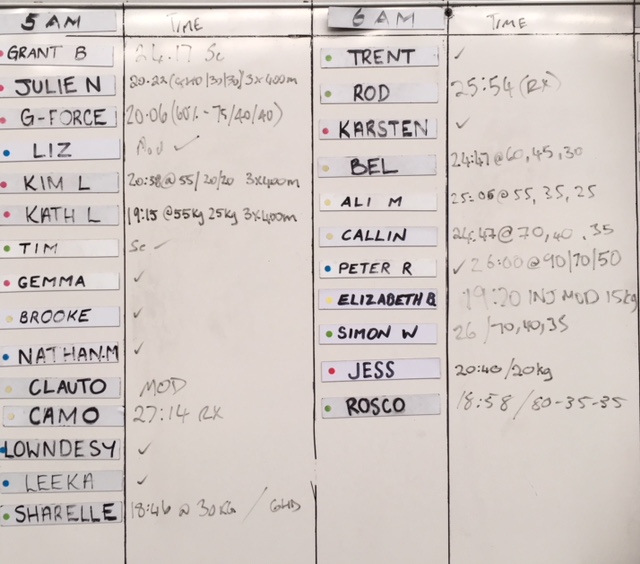 5 AM TIME
GRANT B 24.17 Sc
JULIE N 20:22 3x400m
G-FORCE 20:06 (60% - 75/40/40)
LIZ Mod ✓
KIM L 20:58 @ 55/20/20 3x400m
KATH L 19:15 @ 55kg 25kg 3x400m
TIM Sc ✓
GEMMA ✓
BROOKE ✓
NATHAN.M ✓
CLAUTO MOD
CAMO 27:14 RX
LOWNDESY ✓
LEEKA ✓
SHARELLE 18:46 @ 30KG / GHD
6 AM TIME
TRENT ✓
ROD 25:54 (RX)
KARSTEN ✓
BEL 24:47 @ 60, 45, 30
ALI M 25:06 @ 55, 35, 25
CALLIN 24:47 @ 70, 40, 35
PETER R ✓ 26:00 @ 90/70/50
ELIZABETH B 19:20 INJ MOD 15kg
SIMON W 26 /70,40,35
JESS 20:40 /20kg
ROSCO 18:58 / 80-35-35